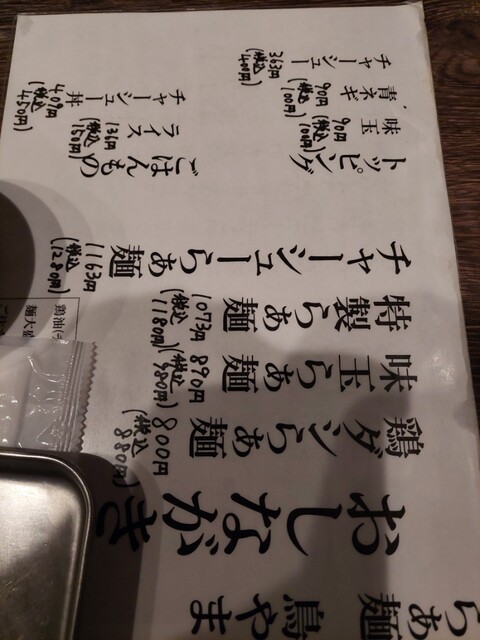 らぁ麺 鳥やま
おしながき
鶏ダシらぁ麺
800円
(税込 880円)
味玉らぁ麺
890円
(税込 980円)
特製らぁ麺
1073円
(税込 1180円)
チャーシューらぁ麺
1163円
(税込 1280円)
トッピング
味玉
90円
(税込 100円)
青ネギ
90円
(税込 100円)
チャーシュー
363円
(税込 400円)
ごはんもの
ライス
136円
(税込 150円)
チャーシュー丼
409円
(税込 450円)
鶏油
麺大盛